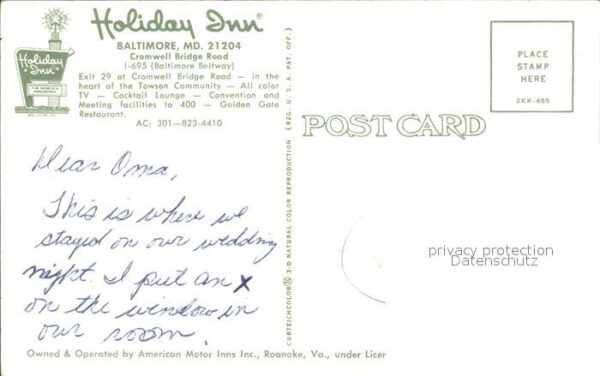 Holiday Inn®
BALTIMORE, MD. 21204
Cromwell Bridge Road
I-695 (Baltimore Beltway)
Exit 29 at Cromwell Bridge Road — in the
heart of the Towson Community — All color
TV — Cocktail Lounge — Convention and
Meeting facilities to 400 — Golden Gate
Restaurant.
AC: 301—823-4410
Holiday
Inn®
Dear Oma,
This is where we
stayed on our wedding
night. I put an X
on the window in
our room.
Owned & Operated by American Motor Inns Inc., Roanoke, Va., under Licen
CURTEICHCOLOR® 3-D NATURAL COLOR REPRODUCTION (REG. U.S.A. PAT. OFF.)
POST CARD
PLACE
STAMP
HERE
2EK-655
privacy protection
Datenschutz